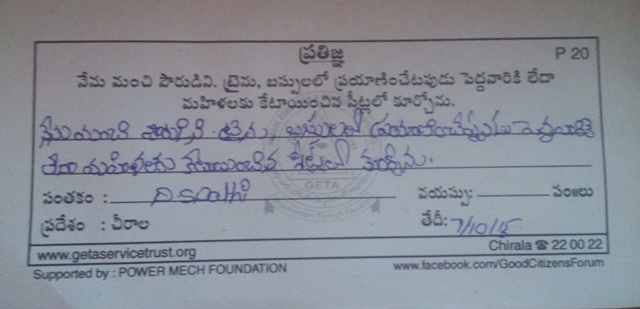 ప్రతిజ్ఞ P 20
నేను మంచి పౌరుడిని. ట్రైను, బస్సులలో ప్రయాణించేటపుడు పెద్దవారికి లేదా
మహిళలకు కేటాయించిన సీట్లలో కూర్చోను.
నేను మంచి పౌరుడిని ట్రైను బస్సులలో ప్రయాణించేటప్పుడు పెద్దవారికి
లేదా మహిళలకు కేటాయించిన సీట్లలో కూర్చోను.
సంతకం : వయస్సు: సం॥లు
ప్రదేశం : చీరాల తేదీ: 7/10/15
GETA
www.getaservicetrust.org Chirala ☎ 22 00 22
Supported by : POWER MECH FOUNDATION www.facebook.com/GoodCitizensForum